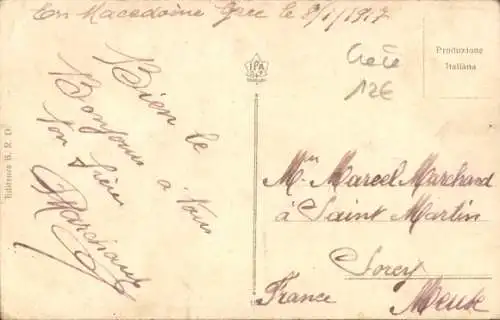 En Macedoine Grec le 8/1/1917
Bien le
Bonjour à vous
ton frère
Marchand
Editeurs B. R. D.
IPA
Crète
12€
Produzione
Italiana
Mr Marcel Marchand
à Saint Martin
Sorcy
France Meuse